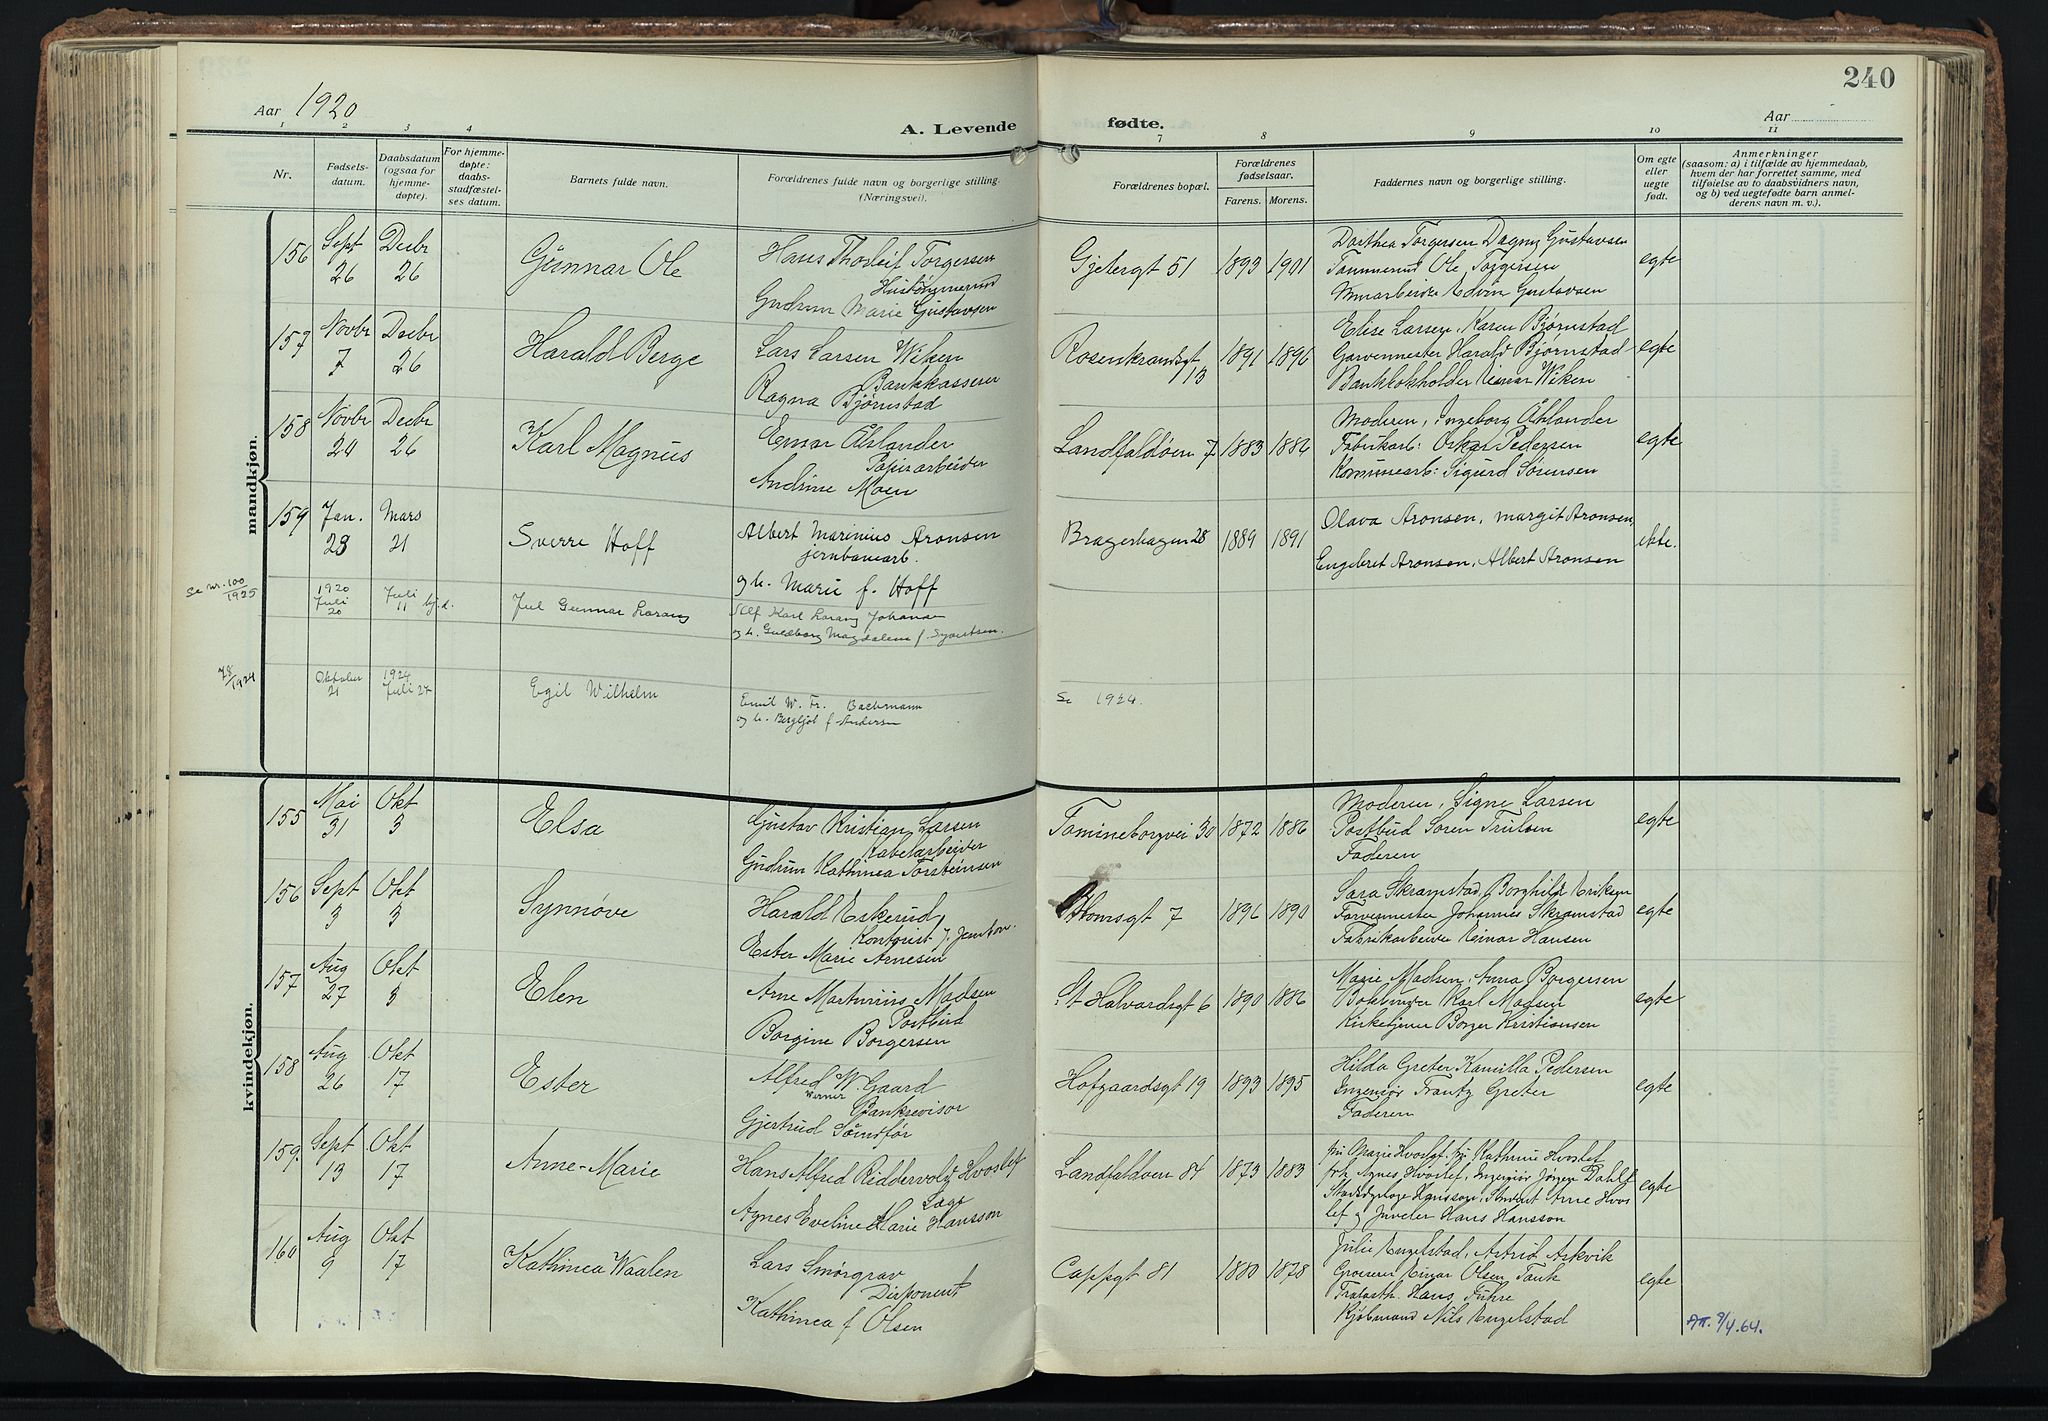 240
Aar 1920
A. Levende
fødte.
Aar
1 2 3 4
7 8 9 10 11
Nr.
Fødsels-
datum.
Daabsdatum
(ogsaa for
hjemme-
døpte).
For hjemme-
døpte:
daabs-
stadfæstel-
ses datum.
Barnets fulde navn.
Forældrenes fulde navn og borgerlige stilling.
(Næringsvei).
Forældrenes bopæl.
Forældrenes
fødselsaar.
Farens. Morens.
Faddernes navn og borgerlige stilling.
Om egte
eller
uegte
født.
Anmerkninger
(saasom: a) i tilfælde av hjemmedaab,
hvem der har forrettet samme, med
tilføielse av to daabsvidners navn,
og b) ved uegtefødte barn anmel-
derens navn m. v.).
mandkjøn.
156 Sept 26 Decbr 26 Gunnar Ole
Hans Thorleif Torgersen
Gudrun Marie Gustavsen
Gjetergt 51 1893 1901
Dorthea Torgersen Dagny Gustavsen
Ole Torgersen
Edvin Gustavsen
egte
157 Novbr 7 Decbr 26 Harald Berge
Lars Larsen Wiken
Bankkasserer
Ragna Bjørnstad
Rosenkrandsgt 13 1891 1896
Elise Larsen, Karen Bjørnstad
Garvermester Harald Bjørnstad
Bankbokholder Einar Wiken
egte
158 Novbr 24 Decbr 26 Karl Magnus
Einar Åhlander
Papirarbeider
Andrine Moen
Landfaldøen 7 1883 1886
Moderen, Ingeborg Åhlander
Fabrikarb: Oskar Pedersen
Kommunearb: Sigurd Sørensen
egte
159 Jan. 23 Mars 21 Sverre Hoff
Albert Marinius Aronsen
jernbanearb.
og h. Marie f. Hoff
Bragerhagen 28 1889 1891
Olava Aronsen, Margit Aronsen,
Engebret Aronsen, Albert Aronsen
ekte.
Se nr. 100/1925 1920 Juli 20 Juli 11 hj.d. Jul Gunnar Lorang
Karl Lorang Johansen
og h. Guldborg Magdalene f. Syvertsen.
78/1924 Oktober 21 1924 Juli 27 Egil Wilhelm
Emil W. Fr. Bachmann
og h. Bergljot f. Andersen
Se 1924.
kvindekjøn.
155 Mai 31 Okt 3 Elsa
Gustav Kristian Larsen
Kabelarbeider
Gudrun Kathinca Torsteinsen
Tomineborgvei 30 1872 1886
Moderen, Signe Larsen
Postbud Soren Trulsen
Faderen
egte
156 Sept 3 Okt 3 Synnøve
Harald Eskerud
Kontorist
Ester Marie Arnesen
Blomsgt 7 1896 1890
Sara Skramstad, Borghild Eriksen
Farvermester Johannes Skramstad
Fabrikarbeider Einar Hansen
egte
157 Aug 27 Okt 3 Elen
Arne Marturius Madsen
Postbud
Borgine Borgersen
St Halvardsgt 6 1890 1886
Marie Madsen, Anna Borgersen
Bokbinder Karl Madsen
Kirketjener Borger Kristiansen
egte
158 Aug 26 Okt 17 Ester
Alfred W. Gaard
Werner Bankrevisor
Gjertrud Sømdfør
Hofgaardsgt 19 1893 1895
Hilda Greter Kamilla Pedersen
Ingeniør Frantz Greter
Faderen
egte
159. Sept 13 Okt 17 Anne-Marie
Hans Alfred Riddervold Hvoslef
Læge
Agnes Eveline Marie Hansson
Landfaldøen 84 1873 1883
Kathrine Hvoslef
frk. Agnes Hvoslef, Ingeniør Jørgen Dahl
Hansson, Student Arne Hvos
lef og Juveler Hans Hansson
egte
160 Aug 9 Okt 17 Kathinca Waalen
Lars Smørgrav
Disponent
Kathinca f Olsen
Cappsgt 81 1880 1878
Julie Engelstad, Astrid Askvik
Grosserer Einar Olsen Tank
Hans Fuhre
Kjøbmand Nils Engelstad
egte
Att. 8/4.64.